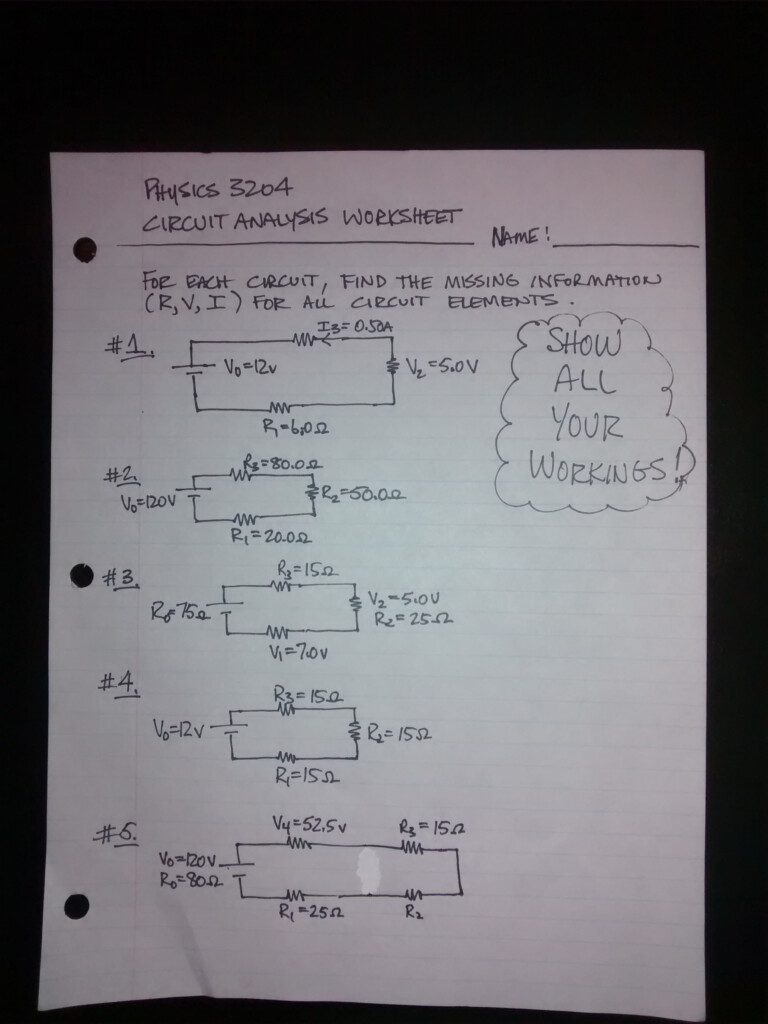 PHYSICS 3204
CIRCUIT ANALYSIS WORKSHEET
NAME: ____________
FOR EACH CIRCUIT, FIND THE MISSING INFORMATION
(R, V, I) FOR ALL CIRCUIT ELEMENTS.
SHOW
ALL
YOUR
WORKINGS!
#1.
I₃=0.50A
V₀=12v
V₂=5.0V
R₁=6.0Ω
#2.
R₃=80.0Ω
V₀=120V
R₂=50.0Ω
R₁=20.0Ω
#3.
R₃=15Ω
R₀=75Ω
V₂=5.0V
R₂=25Ω
V₁=7.0v
#4.
R₃=15Ω
V₀=12v
R₂=15Ω
R₁=15Ω
#5.
V₄=52.5v
R₃=15Ω
V₀=120V
R₀=80Ω
R₁=25Ω
R₂